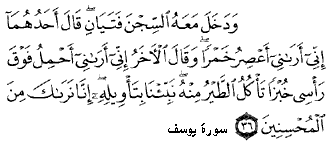 وَدَخَلَ مَعَهُ ٱلسِّجْنَ فَتَيَانِ ۖ قَالَ أَحَدُهُمَآ
إِنِّىٓ أَرَىٰنِىٓ أَعْصِرُ خَمْرًا ۖ وَقَالَ ٱلْـَٔاخَرُ إِنِّىٓ أَرَىٰنِىٓ أَحْمِلُ فَوْقَ
رَأْسِى خُبْزًا تَأْكُلُ ٱلطَّيْرُ مِنْهُ ۖ نَبِّئْنَا بِتَأْوِيلِهِۦٓ ۖ إِنَّا نَرَىٰكَ مِنَ
ٱلْمُحْسِنِينَ ٣٦ سورة يوسف